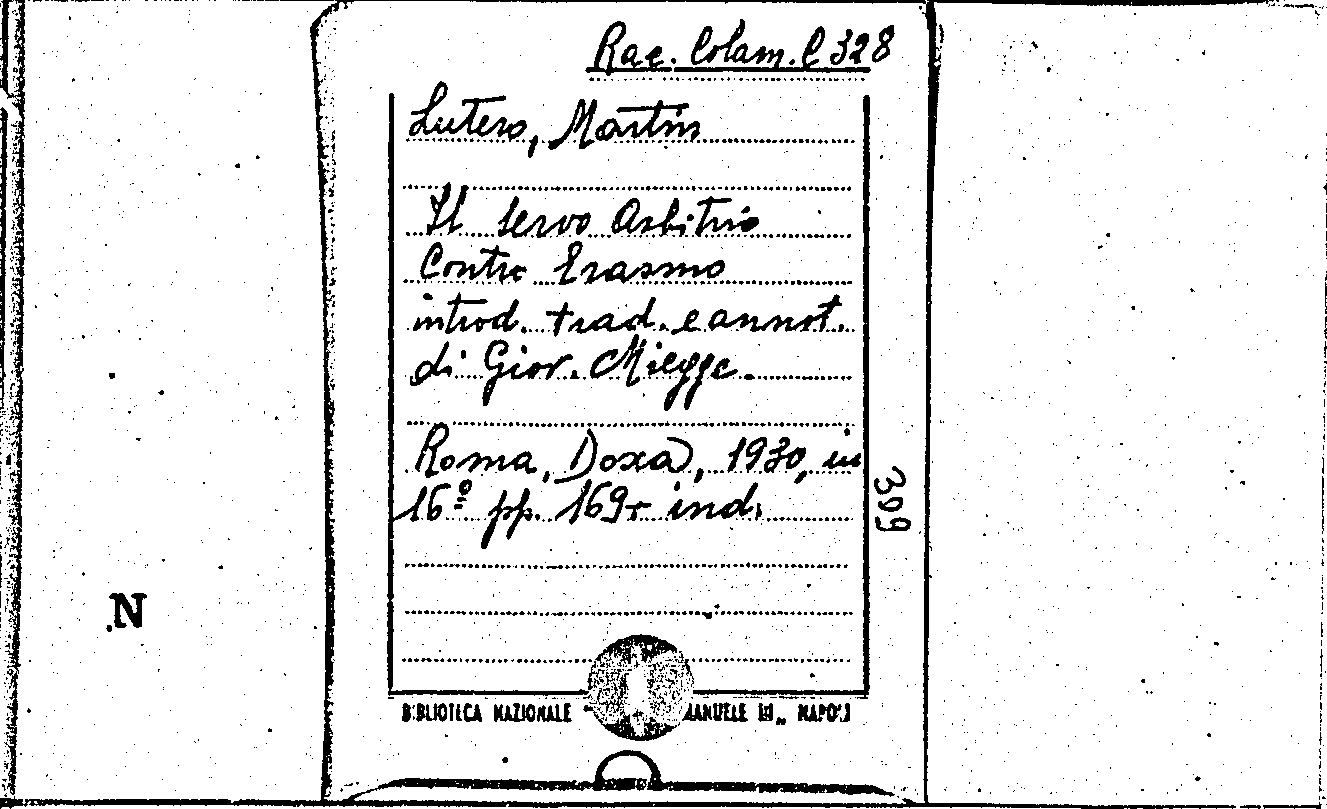 Rac. Colam. C 328
Lutero, Martin
Il servo Arbitrio
Contro Erasmo
introd. trad. e annot.
di Giov. Miegge.
Roma, Doxa, 1930, in
16º pp. 169+ ind.
309
N
BIBLIOTECA NAZIONALE " MANUELE III„ NAPOLI